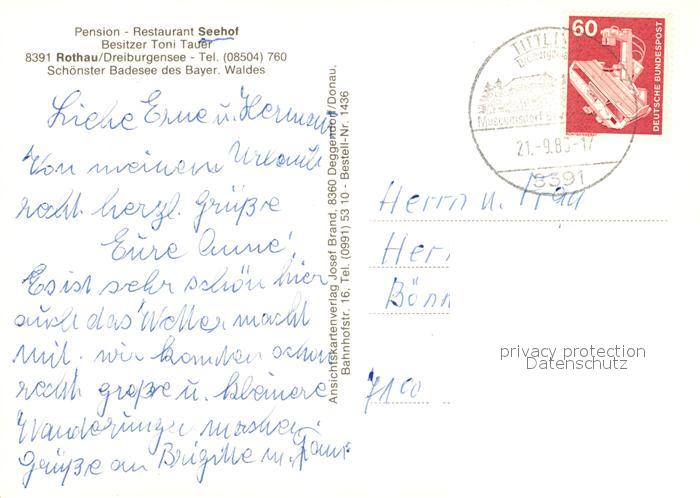 Pension - Restaurant Seehof
Besitzer Toni Tauer
8391 Rothau/Dreiburgensee - Tel. (08504) 760
Schönster Badesee des Bayer. Waldes
Liebe Erne u. Hermann
Von meinem Urlaub
recht herzl. Grüße
Eure Anne!
Es ist sehr schön hier
auch das Wetter macht
mit. wir konnten schon
recht große u. kleinere
Wanderungen machen
Grüße an Brigitte u.
Ansichtskartenverlag Josef Brand, 8360 Deggendorf/Donau,
Bahnhofstr. 16, Tel. (0991) 53 10 - Bestell-Nr. 1436
60
DEUTSCHE BUNDESPOST
TITTLI
Museumsdorf
21.-9.83-17
8391
Herrn u. Frau
Her
Bönn
7100
privacy protection
Datenschutz